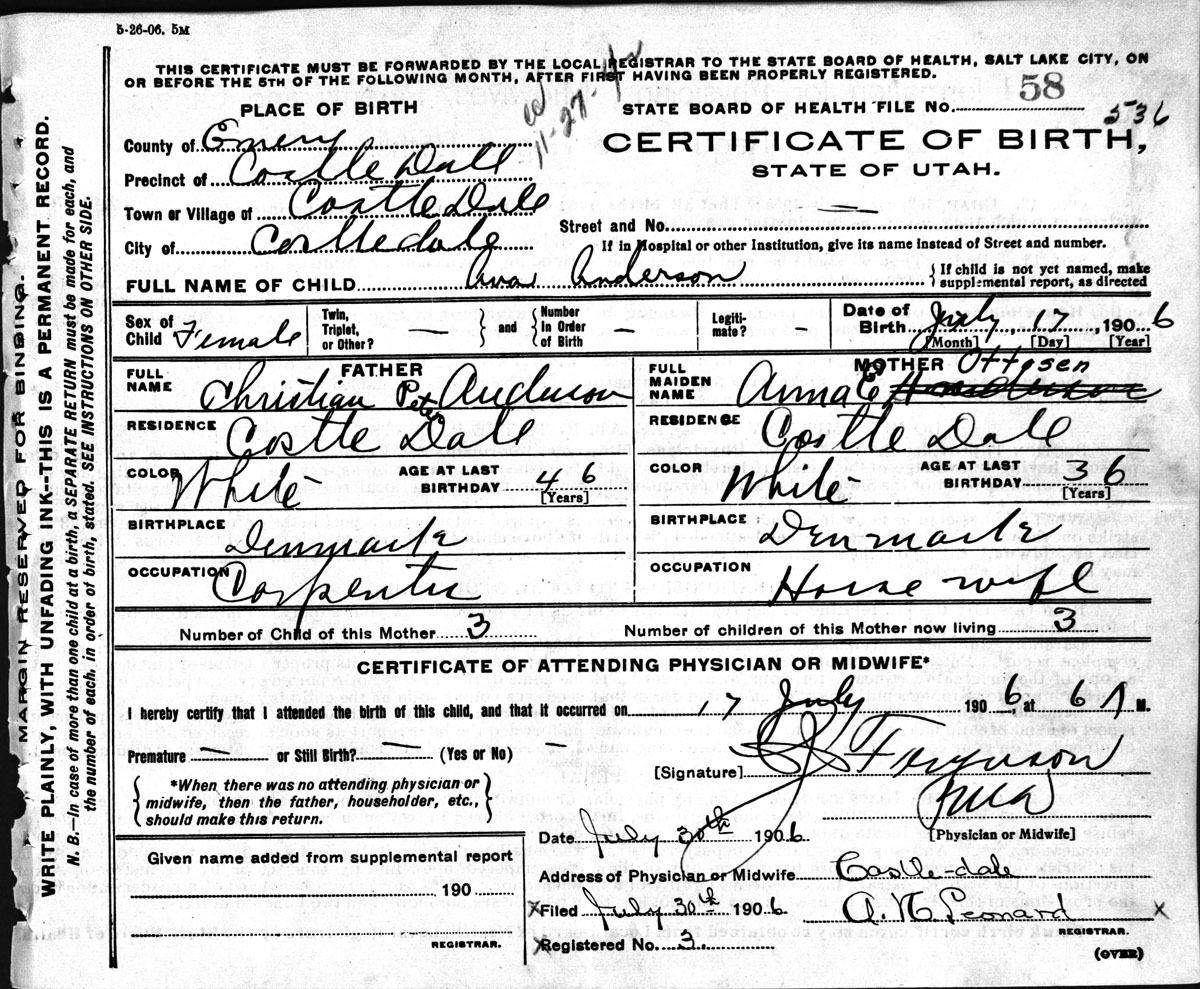 5-26-06. 5M
THIS CERTIFICATE MUST BE FORWARDED BY THE LOCAL REGISTRAR TO THE STATE BOARD OF HEALTH, SALT LAKE CITY, ON
OR BEFORE THE 5TH OF THE FOLLOWING MONTH, AFTER FIRST HAVING BEEN PROPERLY REGISTERED.
11-27
PLACE OF BIRTH
STATE BOARD OF HEALTH FILE NO. 58
536
County of Emery
CERTIFICATE OF BIRTH,
STATE OF UTAH.
Precinct of Castle Dale
Town or Village of Castle Dale
Street and No. —
City of Castledale
If in Hospital or other Institution, give its name instead of Street and number.
FULL NAME OF CHILD Ava Anderson
{ If child is not yet named, make
supplemental report, as directed
Sex of Child Female
Twin, Triplet, or Other? — } and { Number in Order of Birth —
Legitimate? —
Date of Birth July 17, 1906
[Month] [Day] [Year]
FATHER
FULL NAME Christian Peter Anderson
RESIDENCE Castle Dale
COLOR White AGE AT LAST BIRTHDAY 46
[Years]
BIRTHPLACE Denmark
OCCUPATION Carpenter
MOTHER
FULL MAIDEN NAME Anna C Ottosen
RESIDENCE Castle Dale
COLOR White AGE AT LAST BIRTHDAY 36
[Years]
BIRTHPLACE Denmark
OCCUPATION House wife
Number of Child of this Mother 3 Number of children of this Mother now living 3
CERTIFICATE OF ATTENDING PHYSICIAN OR MIDWIFE*
I hereby certify that I attended the birth of this child, and that it occurred on 17 July 1906, at 6 A M.
Premature — or Still Birth? — (Yes or No)
[Signature] Ferguson
{ *When there was no attending physician or
midwife, then the father, householder, etc.,
should make this return. }
[Physician or Midwife]
Date July 30th 1906
Given name added from supplemental report
190
REGISTRAR.
Address of Physician or Midwife Castle-dale
x Filed July 30th 1906 A. N. Leonard x
REGISTRAR.
x Registered No. 3.
(OVER)
MARGIN RESERVED FOR BINDING.
WRITE PLAINLY, WITH UNFADING INK--THIS IS A PERMANENT RECORD.
N. B.—In case of more than one child at a birth, a SEPARATE RETURN must be made for each, and
the number of each, in order of birth, stated. SEE INSTRUCTIONS ON OTHER SIDE.